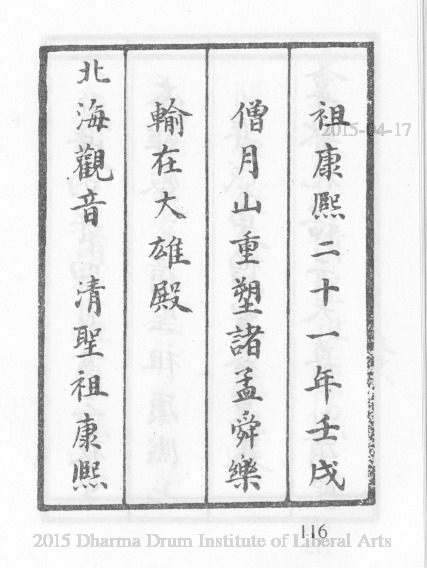 祖康熙二十一年壬戌
僧月山重塑諸孟舜樂
輸在大雄殿
北海觀音 清聖祖康熙
116
2015-04-17
2015 Dharma Drum Institute of Liberal Arts